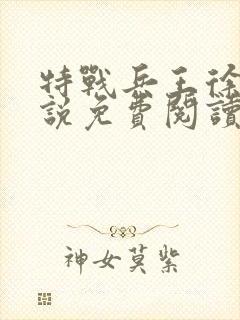 特戰兵王徐
說免費閱讀
神女莫紫